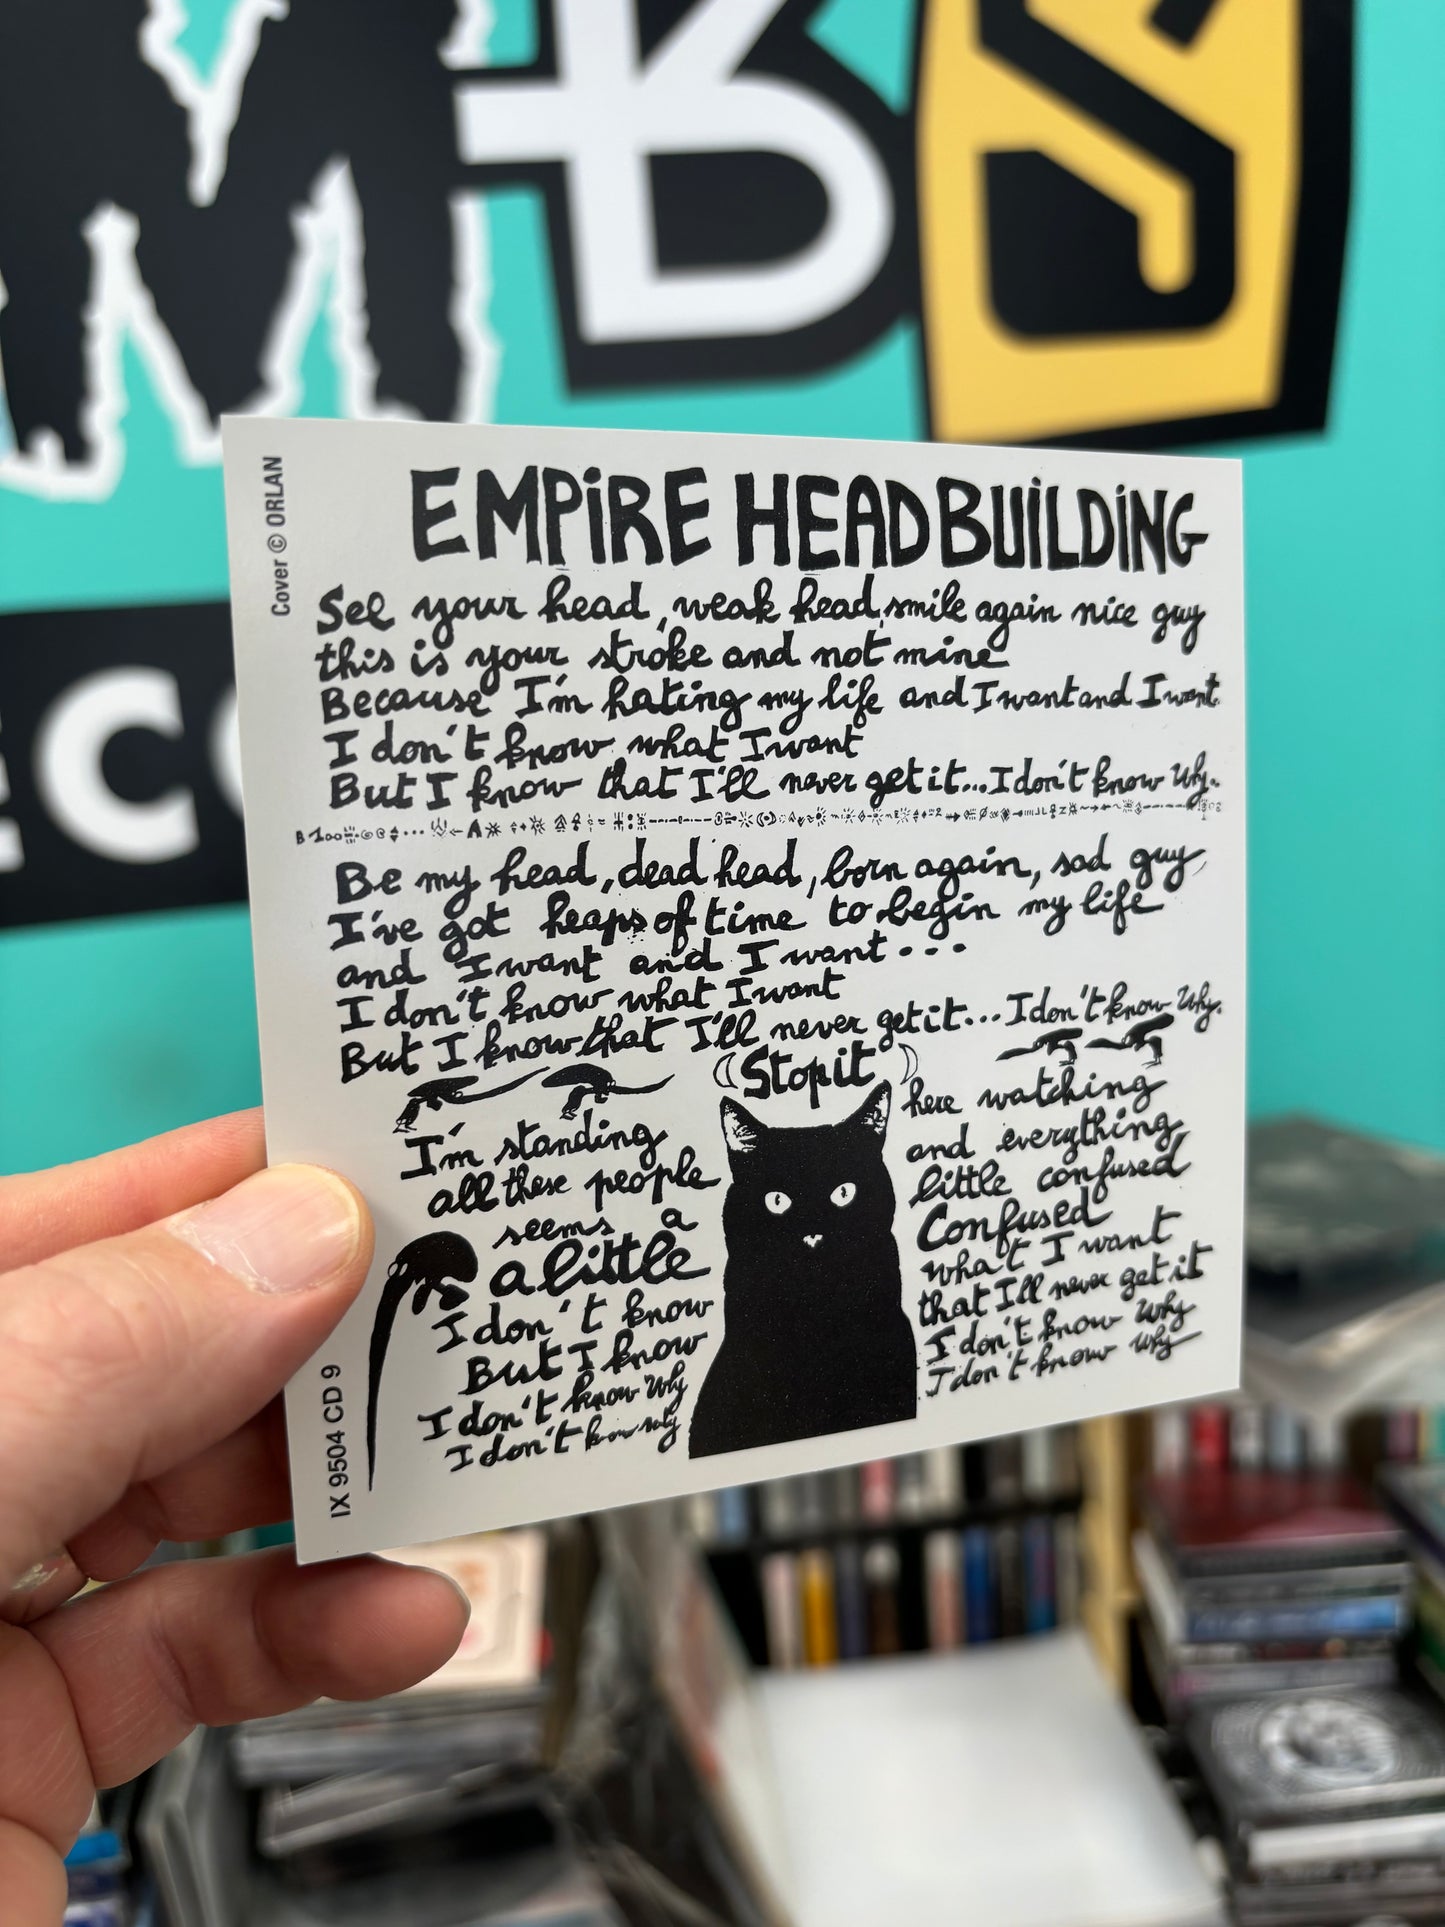 MBS
ECO
Cover © ORLAN
EMPiRE HEADBUiLDiNG
See your head, weak head, smile again nice guy
this is your stroke and not mine
Because I'm hating my life and I want and I want
I don't know what I want
But I know that I'll never get it...I don't know Why.
Be my head, dead head, born again, sad guy,
I've got heaps of time to begin my life
and I want and I want...
I don't know what I want
But I know that I'll never get it... I don't know Why.
Stop it
I'm standing
all these people
seems a
a little
I don't know
But I know
I don't know Why
I don't know why
here watching
and everything
little confused
Confused
what I want
that I'll never get it
I don't know Why
I don't know why
IX 9504 CD 9